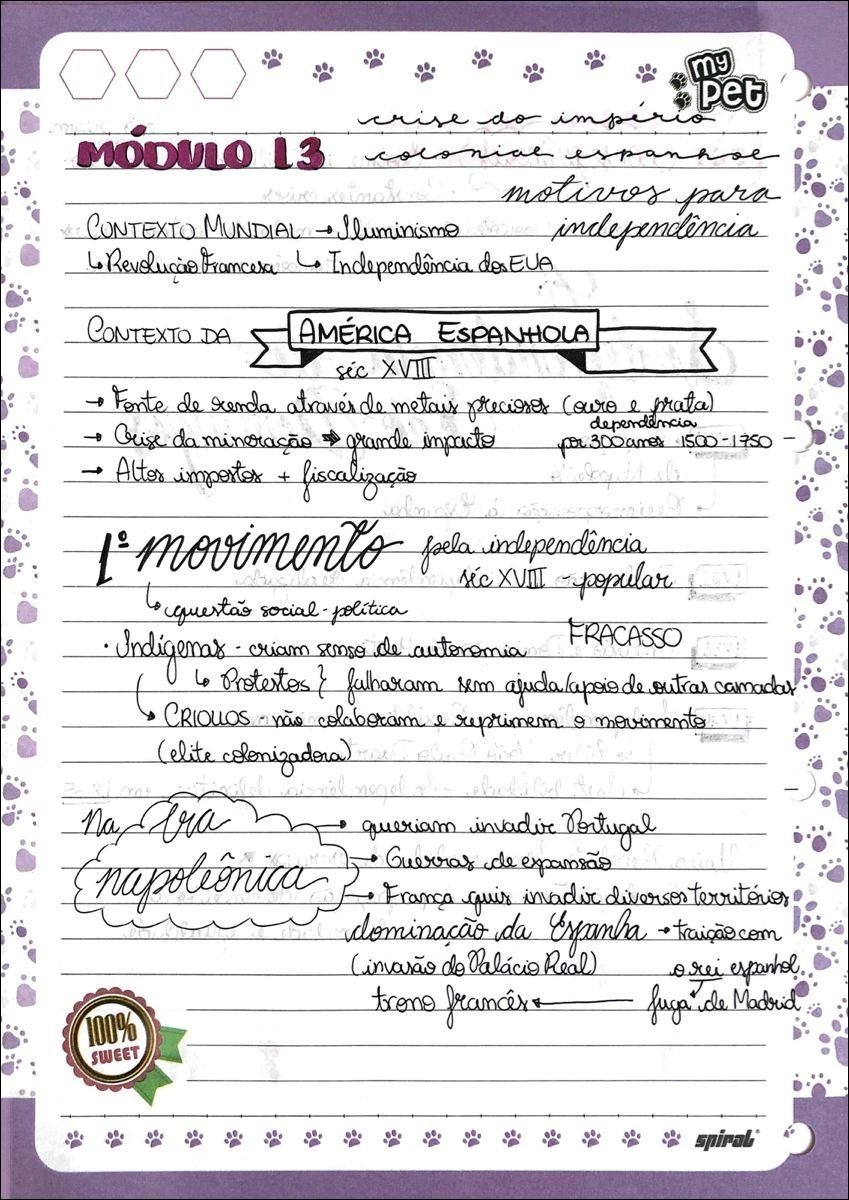 my
pet
crise do império
MÓDULO 13 colonial espanhol
motivos para
independência
CONTEXTO MUNDIAL → Iluminismo
↳ Revolução Francesa ↳ Independência dos EUA
CONTEXTO DA AMÉRICA ESPANHOLA
séc XVIII
→ Fonte de renda através de metais preciosos (ouro e prata)
dependência
→ Crise da mineração → grande impacto por 300 anos 1500-1750
→ Altos impostos + fiscalização
1º movimento pela independência
séc XVIII - popular
↳ questão social-política
FRACASSO
· Indígenas - criam senso de autonomia
↳ Protestos } falharam sem ajuda/apoio de outras camadas
↳ CRIOLLOS - não colaboram e reprimem o movimento
(elite colonizadora)
Na Era → queriam invadir Portugal
→ Guerras de expansão
napoleônica → França quis invadir diversos territórios
dominação da Espanha → traição com
(invasão do Palácio Real) o rei espanhol
trono francês ← fuga de Madrid
100%
SWEET
spiral